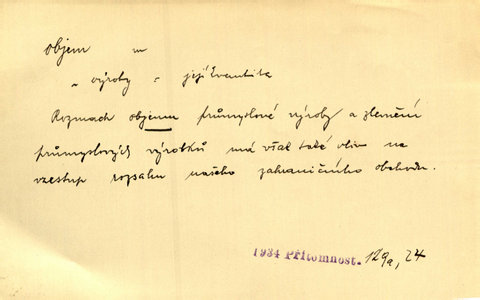 objem m
„ výroby = její kvantita
Rozmach objemu průmyslové výroby a zlevnění
průmyslových výrobků má však také vliv na
vzestup rozsahu našeho zahraničního obchodu.
1934 Přítomnost. 129a, 24